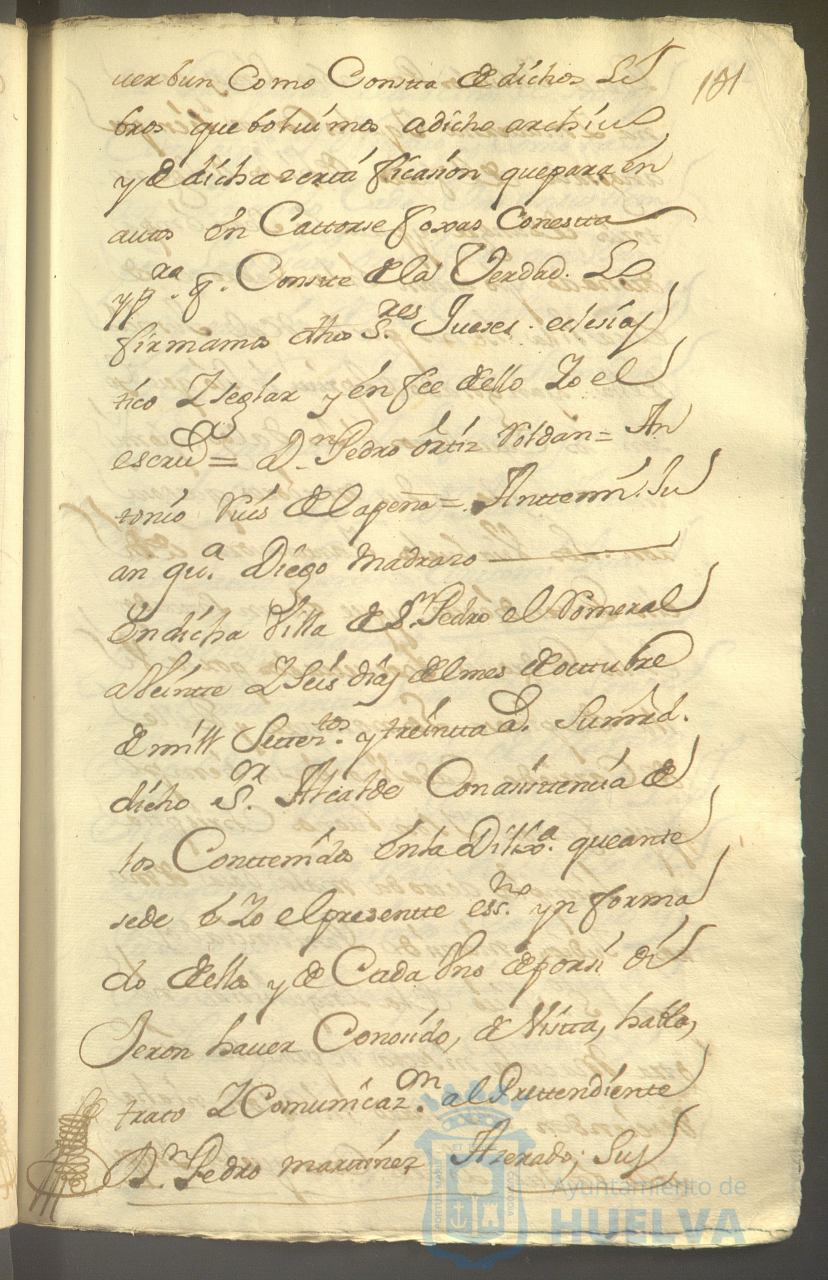 181
verbun Como Constta de dichos Li
bros que bolvimos a dicho archivo
y de dicha zertificasion que para en
auttos en Cattorse foxas Con estta
y pra. q. Constte de la Verdad. Lo
firmamos dhos Sres. Jueses eclesias
tico Y seglar y en fee de ello Yo el
escriv = Dn. Pedro ortiz Roldan = An
tonio Ruis de la peña = Anttemi. Ju
an qua. Diego Madraso
En dicha Villa de Sn. Pedro el Romeral
a Veintte Y Seis dias del mes de octtubre
de mill Settezttos. y treintta as. Su mrd.
dicho Sor. Alcalde Con asisttencia de
los Conttenidos en la Dilixa. que antte
sede e Yo el presentte essno. ynforma
do de ellos y de Cada Uno de por si di
Jeron haver Conosido, de Vistta, habla,
trato Y Comunicazon. al Prettendiente
Dn. Pedro marttinez , Sus
Ayuntamiento de
HUELVA